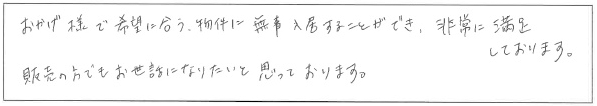 おかげ様で希望に合う、物件に無事入居することができ、非常に満足
しております。
販売の方でもお世話になりたいと思っております。